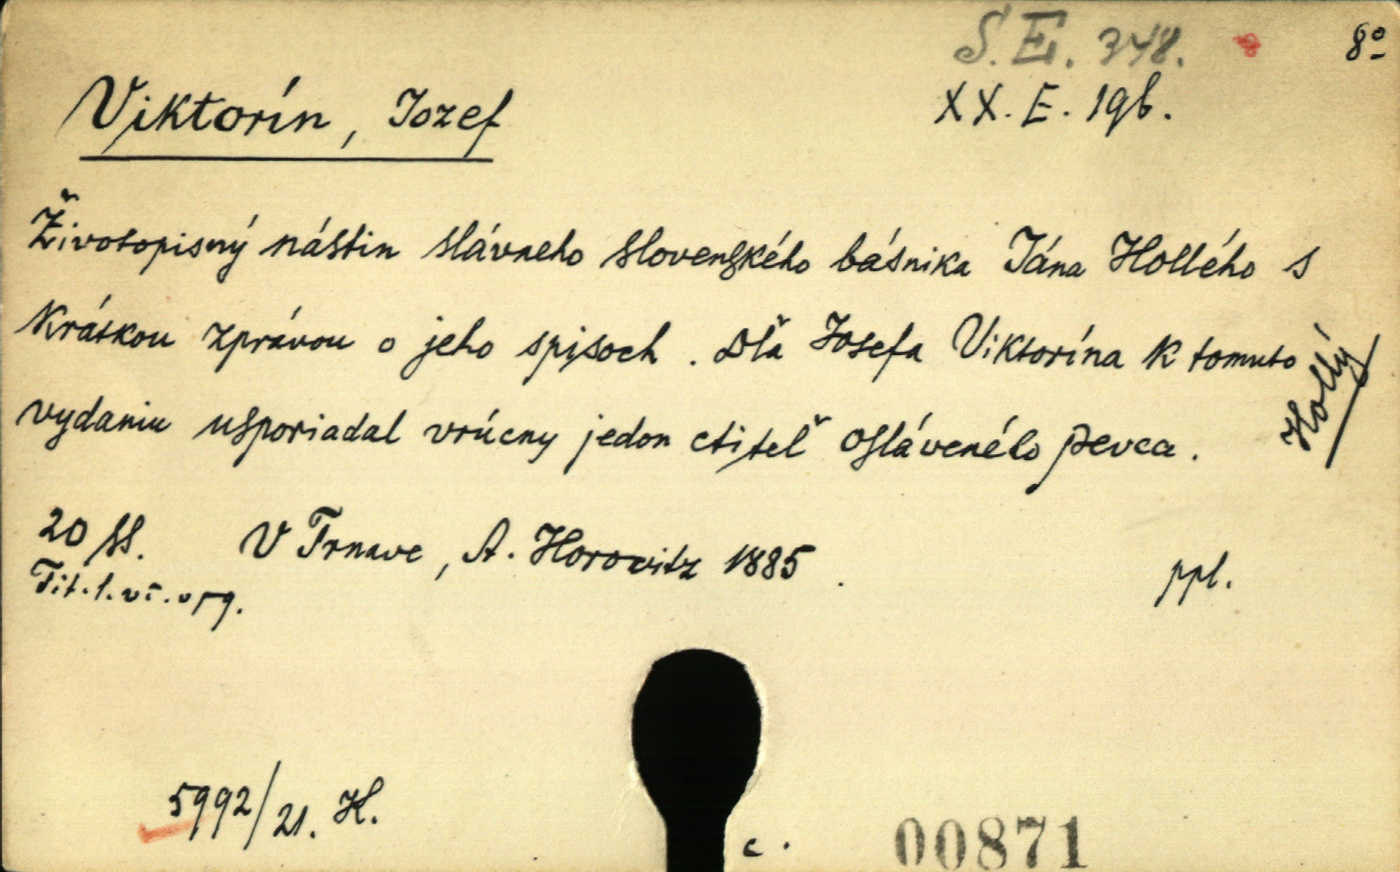 S. E. 348. 8°
Viktorín, Jozef XX. E. 196.
Životopisný nástin slávneho slovenského básnika Jána Hollého s
krátkou zprávou o jeho spisoch. Dľa Josefa Viktorína k tomuto
vydaniu usporiadal vrúcny jedon ctiteľ oslávenélo pevca.
Hollý
20 ss. V Trnave, A. Horovitz 1885. ppl.
Tit. l. vč. org.
5992/21. H.
c. 00871